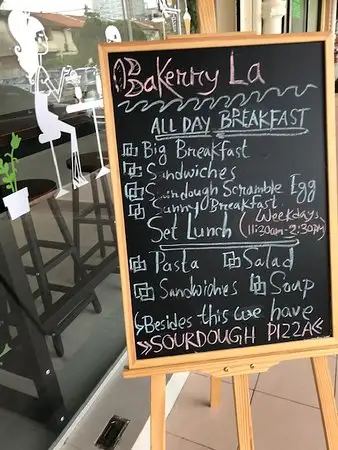 Bakerry La
ALL DAY BREAKFAST
Big Breakfast
Sandwiches
Sourdough Scramble Egg
Sunny Breakfast
Set Lunch (Weekdays 11:30am-2:30pm)
Pasta Salad
Sandwiches Soup
Besides this we have
»SOURDOUGH PIZZA«